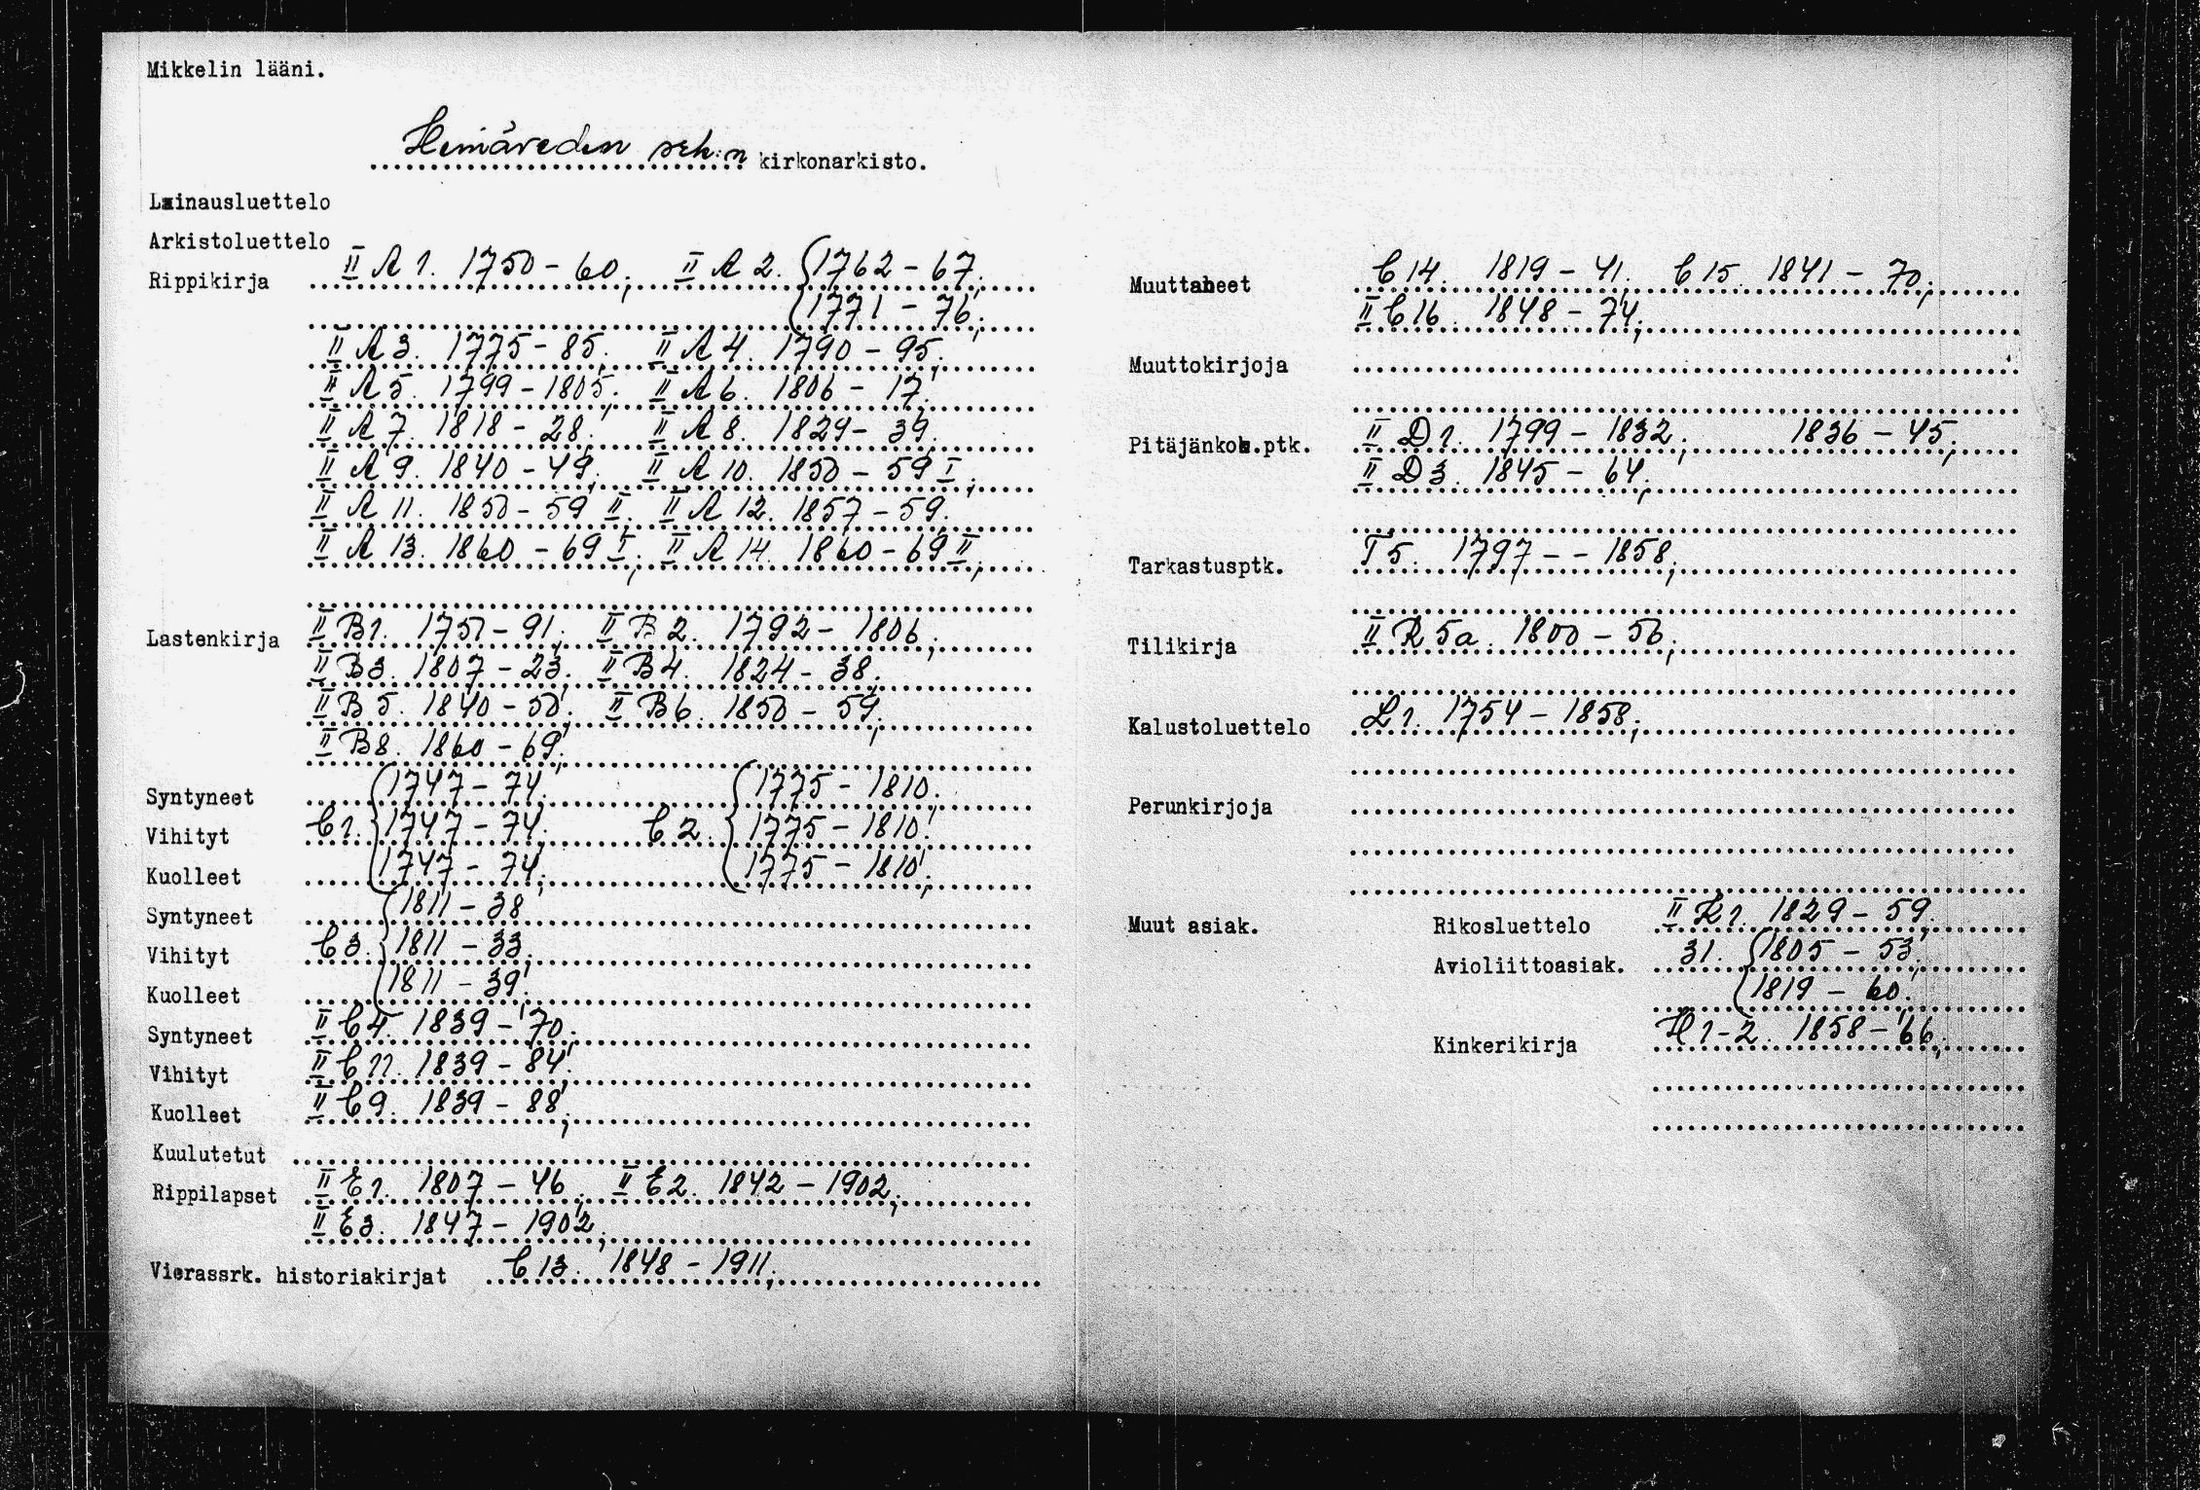 Mikkelin lääni.
Heinäveden srk:n kirkonarkisto.
Lainausluettelo
Arkistoluettelo
Rippikirja II A 1. 1750-60; II A 2. 1762-67;
1771-76;
II A 3. 1775-85; II A 4. 1790-95;
II A 5. 1799-1805; II A 6. 1806-17;
II A 7. 1818-28; II A 8. 1829-39;
II A 9. 1840-49; II A 10. 1850-59 I;
II A 11. 1850-59 II; II A 12. 1857-59.
II A 13. 1860-69 I; II A 14. 1860-69 II;
Lastenkirja II B 1. 1751-91; II B 2. 1792-1806;
II B 3. 1807-23; II B 4. 1824-38;
II B 5. 1840-50; II B 6. 1850-59;
II B 8. 1860-69;
Syntyneet 1747-74; 1775-1810;
Vihityt C 1. 1747-74; C 2. 1775-1810;
Kuolleet 1747-74; 1775-1810;
Syntyneet 1811-38
Vihityt C 3. 1811-33.
Kuolleet 1811-39;
Syntyneet II C 4. 1839-70;
Vihityt II C 11. 1839-84;
Kuolleet II C 9. 1839-88;
Kuulutetut
Rippilapset II E 1. 1807-46; II E 2. 1842-1902;
II E 3. 1847-1902;
Vierassrk. historiakirjat C 13. 1848-1911;
Muuttaneet C 14. 1819-41; C 15. 1841-70;
II C 16. 1848-74;
Muuttokirjoja
Pitäjänkok.ptk. II D 1. 1799-1832; 1836-45;
II D 3. 1845-64;
Tarkastusptk. T 5. 1797--1858;
Tilikirja II R 5a. 1800-56;
Kalustoluettelo L 1. 1754-1858;
Perunkirjoja
Muut asiak. Rikosluettelo II K 1. 1829-59;
Avioliittoasiak. 31. 1805-53;
1819-60;
Kinkerikirja H 1-2. 1858-66;